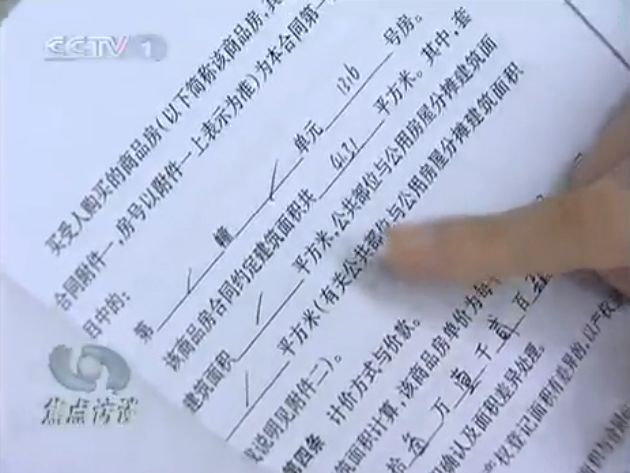 CCTV 1
买受人购买的商品房(以下简称该商品房,其
合同附件一,房号以附件一上表示为准)为本合同第一
目中的:
第 / 幢 / 单元 1316 号房。
该商品房合同约定建筑面积共 平方米。其中,套
建筑面积 / 平方米,公共部位与公用房屋分摊建筑面
/ 平方米(有关公共部位与公用房屋分摊建筑面积
说明见附件二)。
第四条 计价方式与价款。
筑面积计算,该商品房单价为每
万 壹 千 贰 百
确认及面积差异处理。
权登记面积有差异的,以产权
焦点访谈